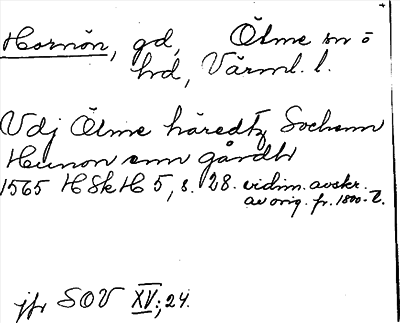 Hornön, gd, Ölme sn o
hd, Värml. l.
Vdj Ölme häredtz Sochenn
Hunon enn gårdh
1565 HSkH 5, s. 28. vidim. avskr.
av orig. fr. 1800-t.
jfr SOV XV; 24.